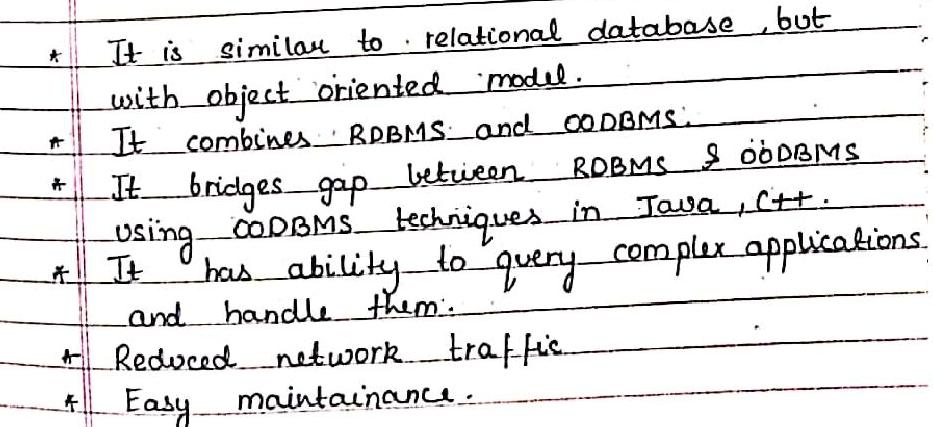 * It is similar to relational database, but
with object oriented model.
* It combines RDBMS and OODBMS.
* It bridges gap between RDBMS & OODBMS
using OODBMS techniques in Java, C++.
* It has ability to query complex applications
and handle them.
* Reduced network traffic
* Easy maintainance.